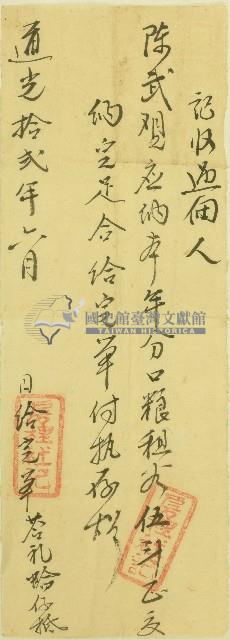 記收過佃人
陳武觀应納本年分口粮租谷伍斗正交
納完足合給完单付执存炤
道光拾弍年六月
日给完单
國史館臺灣文獻館
TAIWAN HISTORICA